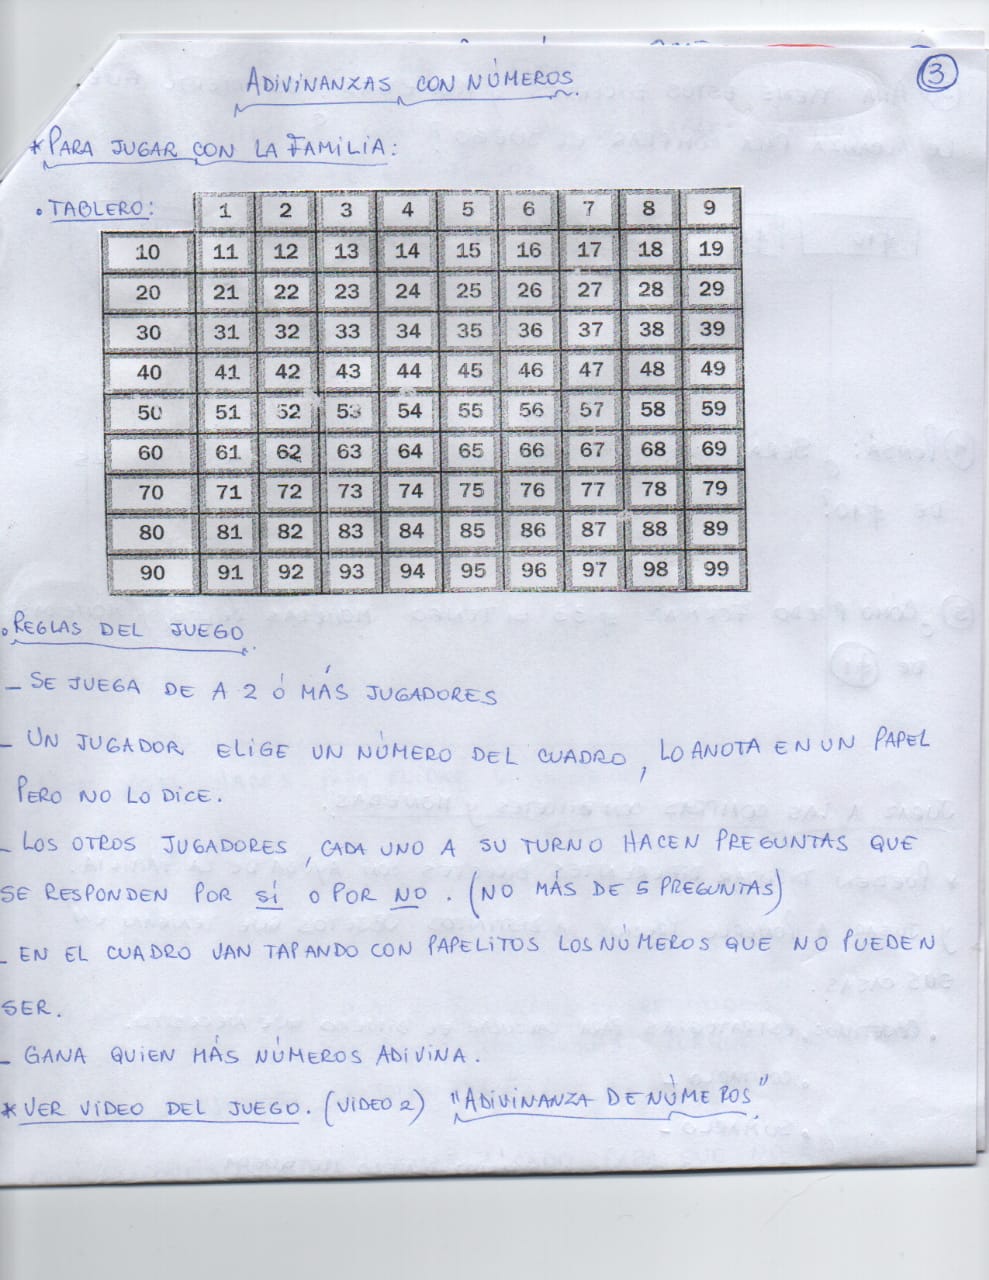 3
ADIVINANZAS CON NÚMEROS.
* PARA JUGAR CON LA FAMILIA:
• TABLERO:
1 2 3 4 5 6 7 8 9
10 11 12 13 14 15 16 17 18 19
20 21 22 23 24 25 26 27 28 29
30 31 32 33 34 35 36 37 38 39
40 41 42 43 44 45 46 47 48 49
50 51 52 53 54 55 56 57 58 59
60 61 62 63 64 65 66 67 68 69
70 71 72 73 74 75 76 77 78 79
80 81 82 83 84 85 86 87 88 89
90 91 92 93 94 95 96 97 98 99
• REGLAS DEL JUEGO.
- SE JUEGA DE A 2 Ó MÁS JUGADORES
- UN JUGADOR ELIGE UN NÚMERO DEL CUADRO, LO ANOTA EN UN PAPEL
PERO NO LO DICE.
- LOS OTROS JUGADORES, CADA UNO A SU TURNO HACEN PREGUNTAS QUE
SE RESPONDEN POR SÍ O POR NO. (NO MÁS DE 5 PREGUNTAS)
- EN EL CUADRO VAN TAPANDO CON PAPELITOS LOS NÚMEROS QUE NO PUEDEN
SER.
- GANA QUIEN MÁS NÚMEROS ADIVINA.
* VER VIDEO DEL JUEGO. (VIDEO 2) "ADIVINANZA DE NÚMEROS"